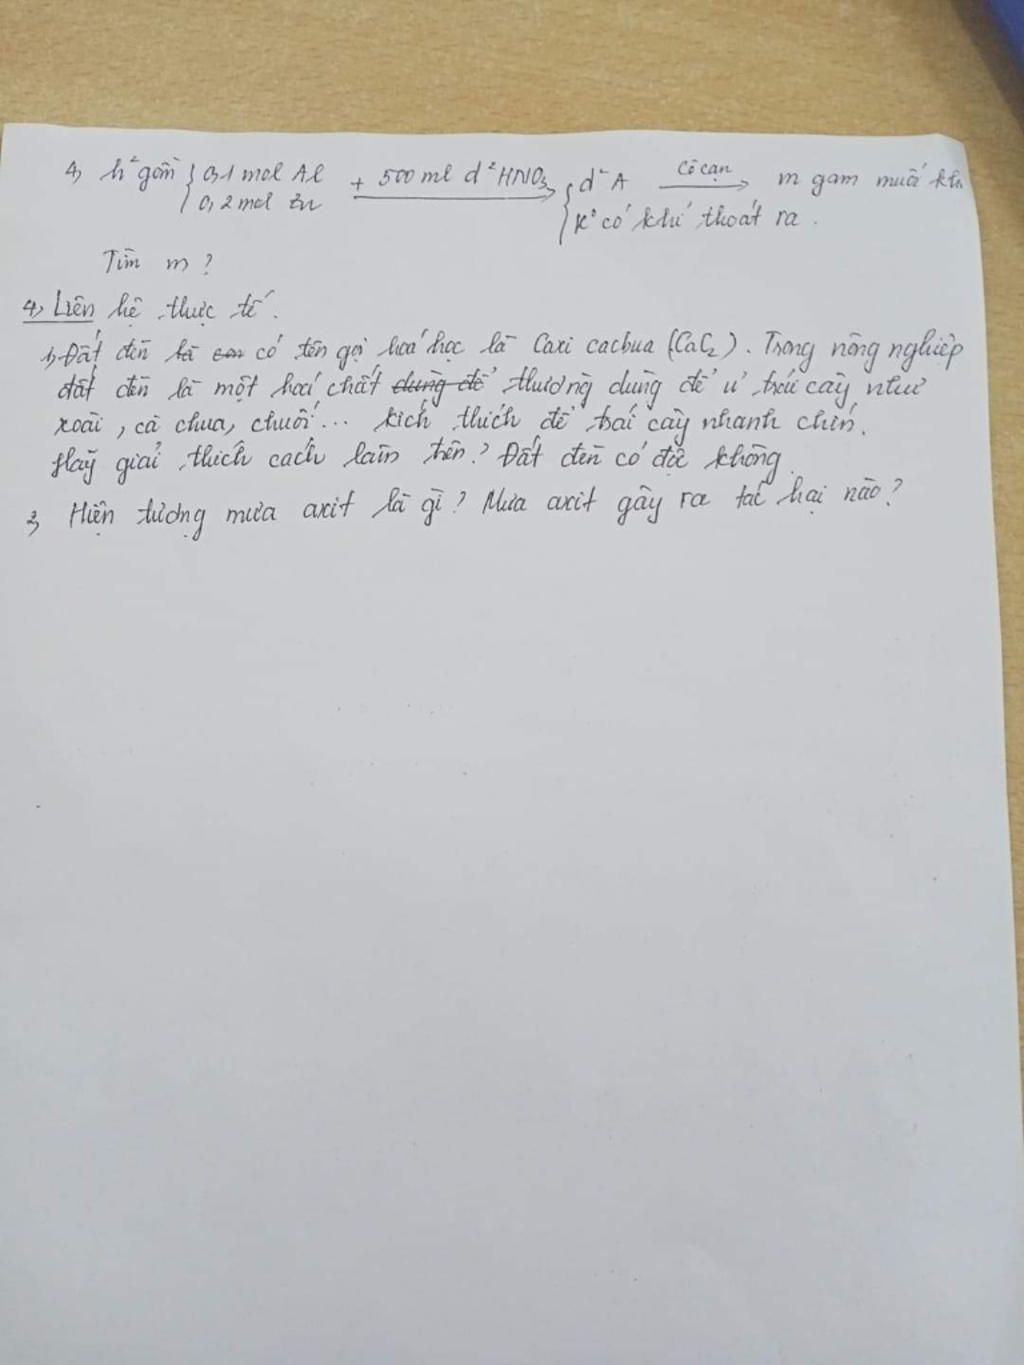 4, h² gồm { 0,1 mol Al + 500 ml d² HNO3 { d² A Cô cạn m gam muối
0,2 mol Zn K° có khí thoát ra.
Tìm m?
4, Liên hệ thực tế.
1, Đất đèn là có tên gọi hoá học là Canxi cacbua (CaC2). Trong nông nghiệp
đất đèn là một hoá chất dùng để thường dùng để ủ trái cây như
xoài, cà chua, chuối... kích thích để trái cây nhanh chín.
Hãy giải thích cách làm trên? Đất đèn có độc không.
2, Hiện tượng mưa axit là gì? Mưa axit gây ra tác hại nào?